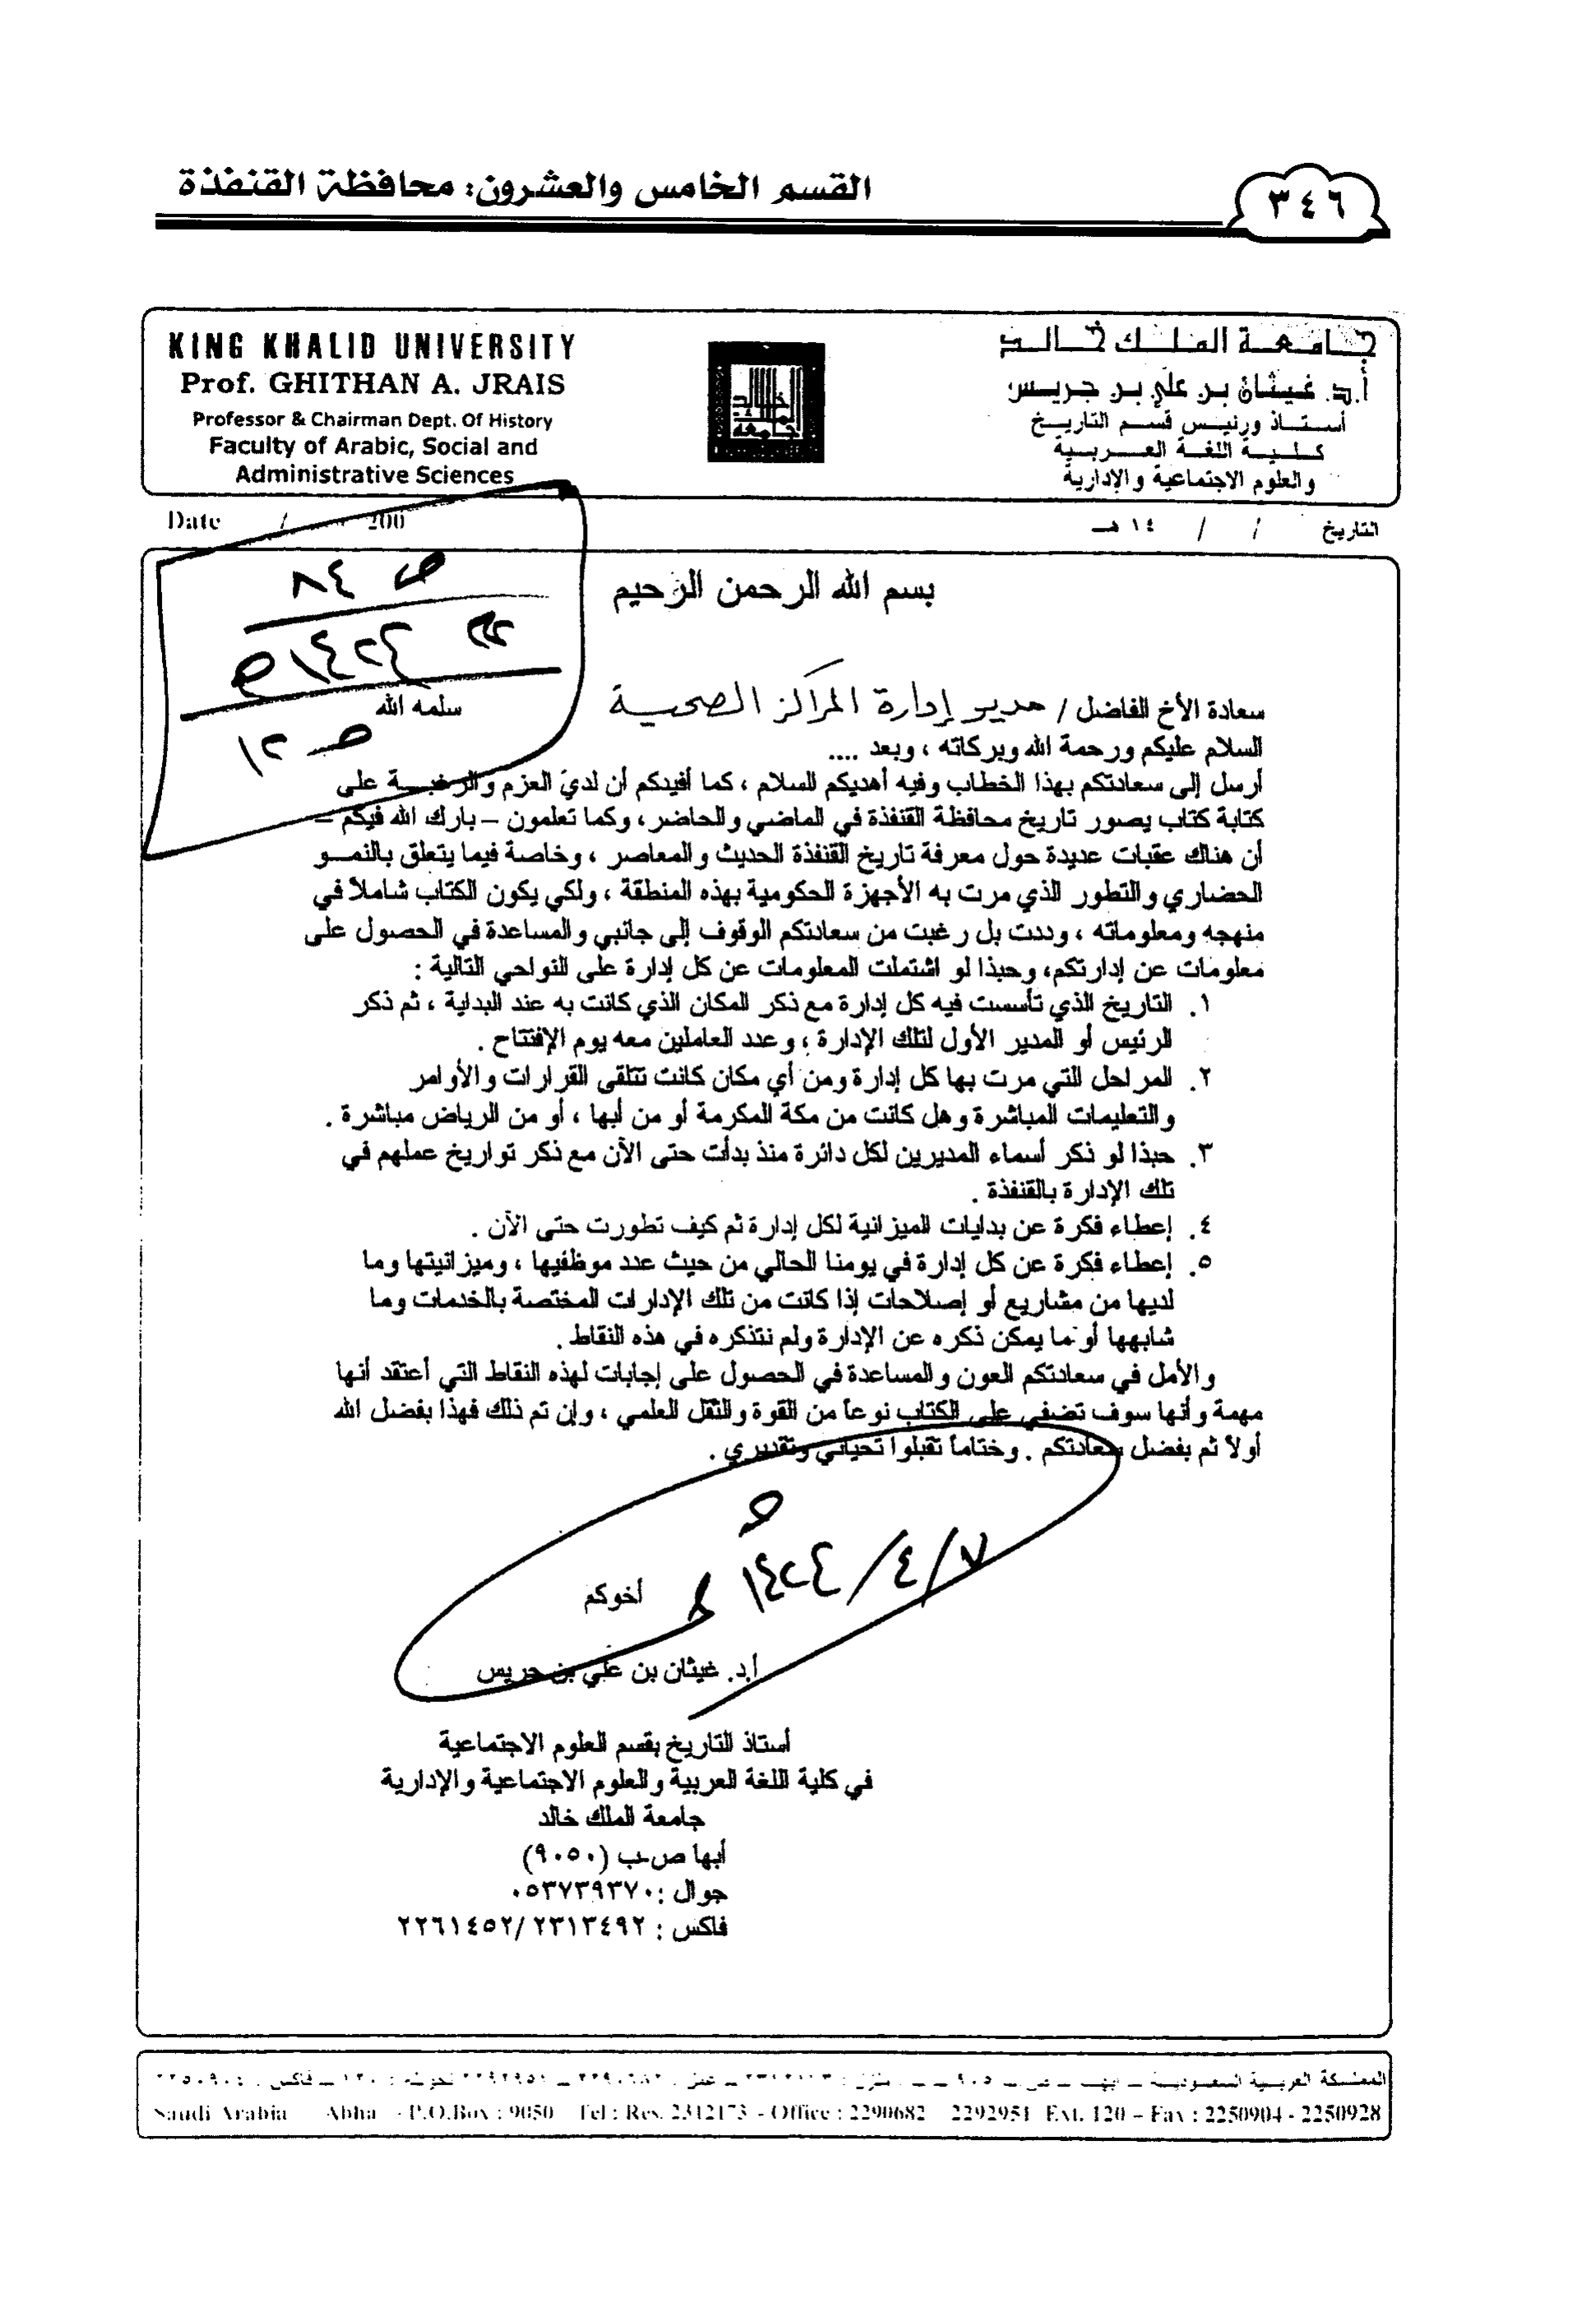 ٣٤٦
القسم الخامس والعشرون: محافظة القنفذة
KING KHALID UNIVERSITY
Prof. GHITHAN A. JRAIS
Professor & Chairman Dept. Of History
Faculty of Arabic, Social and
Administrative Sciences
جامعة الملك خالد
أ.د. غيثان بن علي بن جريس
أستاذ ورئيس قسم التاريخ
كلية اللغة العربية
والعلوم الاجتماعية والإدارية
Date / 200
التاريخ / / ١٤ هـ
ص ٨٤
١٤٢٣ هـ
ص ١٢
بسم الله الرحمن الرحيم
سعادة الأخ الفاضل / مدير إدارة المراكز الصحية سلمه الله
السلام عليكم ورحمة الله وبركاته ، وبعد ....
أرسل إلى سعادتكم بهذا الخطاب وفيه أهديكم السلام ، كما أفيدكم أن لديّ العزم والرغبة على
كتابة كتاب يصور تاريخ محافظة القنفذة في الماضي والحاضر، وكما تعلمون – بارك الله فيكم –
أن هناك عقبات عديدة حول معرفة تاريخ القنفذة الحديث والمعاصر ، وخاصة فيما يتعلق بالنمو
الحضاري والتطور الذي مرت به الأجهزة الحكومية بهذه المنطقة ، ولكي يكون الكتاب شاملاً في
منهجه ومعلوماته ، وددت بل رغبت من سعادتكم الوقوف إلى جانبي والمساعدة في الحصول على
معلومات عن إدارتكم، وحبذا لو اشتملت المعلومات عن كل إدارة على النواحي التالية :
١. التاريخ الذي تأسست فيه كل إدارة مع ذكر المكان الذي كانت به عند البداية ، ثم ذكر
الرئيس أو المدير الأول لتلك الإدارة ، وعدد العاملين معه يوم الإفتتاح .
٢. المراحل التي مرت بها كل إدارة ومن أي مكان كانت تتلقى القرارات والأوامر
والتعليمات المباشرة وهل كانت من مكة المكرمة أو من أبها ، أو من الرياض مباشرة .
٣. حبذا لو ذكر أسماء المديرين لكل دائرة منذ بدأت حتى الآن مع ذكر تواريخ عملهم في
تلك الإدارة بالقنفذة .
٤. إعطاء فكرة عن بدايات الميزانية لكل إدارة ثم كيف تطورت حتى الآن .
٥. إعطاء فكرة عن كل إدارة في يومنا الحالي من حيث عدد موظفيها ، وميزانيتها وما
لديها من مشاريع أو إصلاحات إذا كانت من تلك الإدارات المختصة بالخدمات وما
شابهها أو ما يمكن ذكره عن الإدارة ولم نتذكره في هذه النقاط .
والأمل في سعادتكم العون والمساعدة في الحصول على إجابات لهذه النقاط التي أعتقد أنها
مهمة وأنها سوف تضفي على الكتاب نوعاً من القوة والثقل العلمي ، وإن تم ذلك فهذا بفضل الله
أولاً ثم بفضل سعادتكم . وختاماً تقبلوا تحياتي وتقديري .
٧/٤/١٤٢٤ هـ
أخوكم
أ.د. غيثان بن علي بن جريس
أستاذ التاريخ بقسم العلوم الاجتماعية
في كلية اللغة العربية والعلوم الاجتماعية والإدارية
جامعة الملك خالد
أبها ص.ب (٩٠٥٠)
جوال :٠٥٣٧٣٩٣٧٠
فاكس : ٢٢٦١٤٥٢/٢٣١٣٤٩٢
المملكة العربية السعودية
Saudi Arabia Abha - P.O.Box : 9050 Tel : Res. 2312173 - Office : 2290682 2292951 Ext. 120 – Fax : 2250904 - 2250928